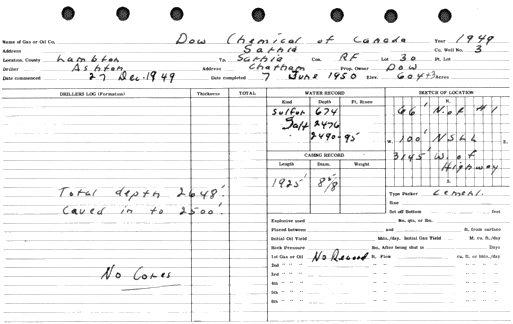 Name of Gas or Oil Co. Dow Chemical of Canada Year 1949
Address Sarnia Co. Well No. 3
Location. County Lambton Tp. Sarnia Con. RF Lot 30 Pt. Lot
Driller Ashton Address Chatham Prop. Owner Dow
Date commenced 27 Dec. 1949 Date completed 7 June 1950 Elev. 604+3 Acres
DRILLERS LOG (Formation) Thickness TOTAL WATER RECORD SKETCH OF LOCATION
Kind Depth Ft. Risen N.
Sulfur 674 66' N. of #1
Salt 2476
2490-95 W. 100' NSLL E.
CASING RECORD 3145' W. of
Length Depth Weight Highway
S.
1925' 8 5/8
Total depth 2648'.
Type Packer Cement.
Size
Caved in to 2500'.
Set off Bottom feet
Explosive used No. qts. or lbs.
Placed between and ft. from surface
Initial Oil Yield bbls./day. Initial Gas Yield M. cu. ft./day
Rock Pressure lbs. After being shut in Days
1st Gas or Oil No Record ft. Flow cu. ft. or bbls./day
No Cores
2nd " " " " " " " "
3rd " " " " " " " "
4th " " " " " " " "
5th " " " " " " " "
6th " " " " " " " "